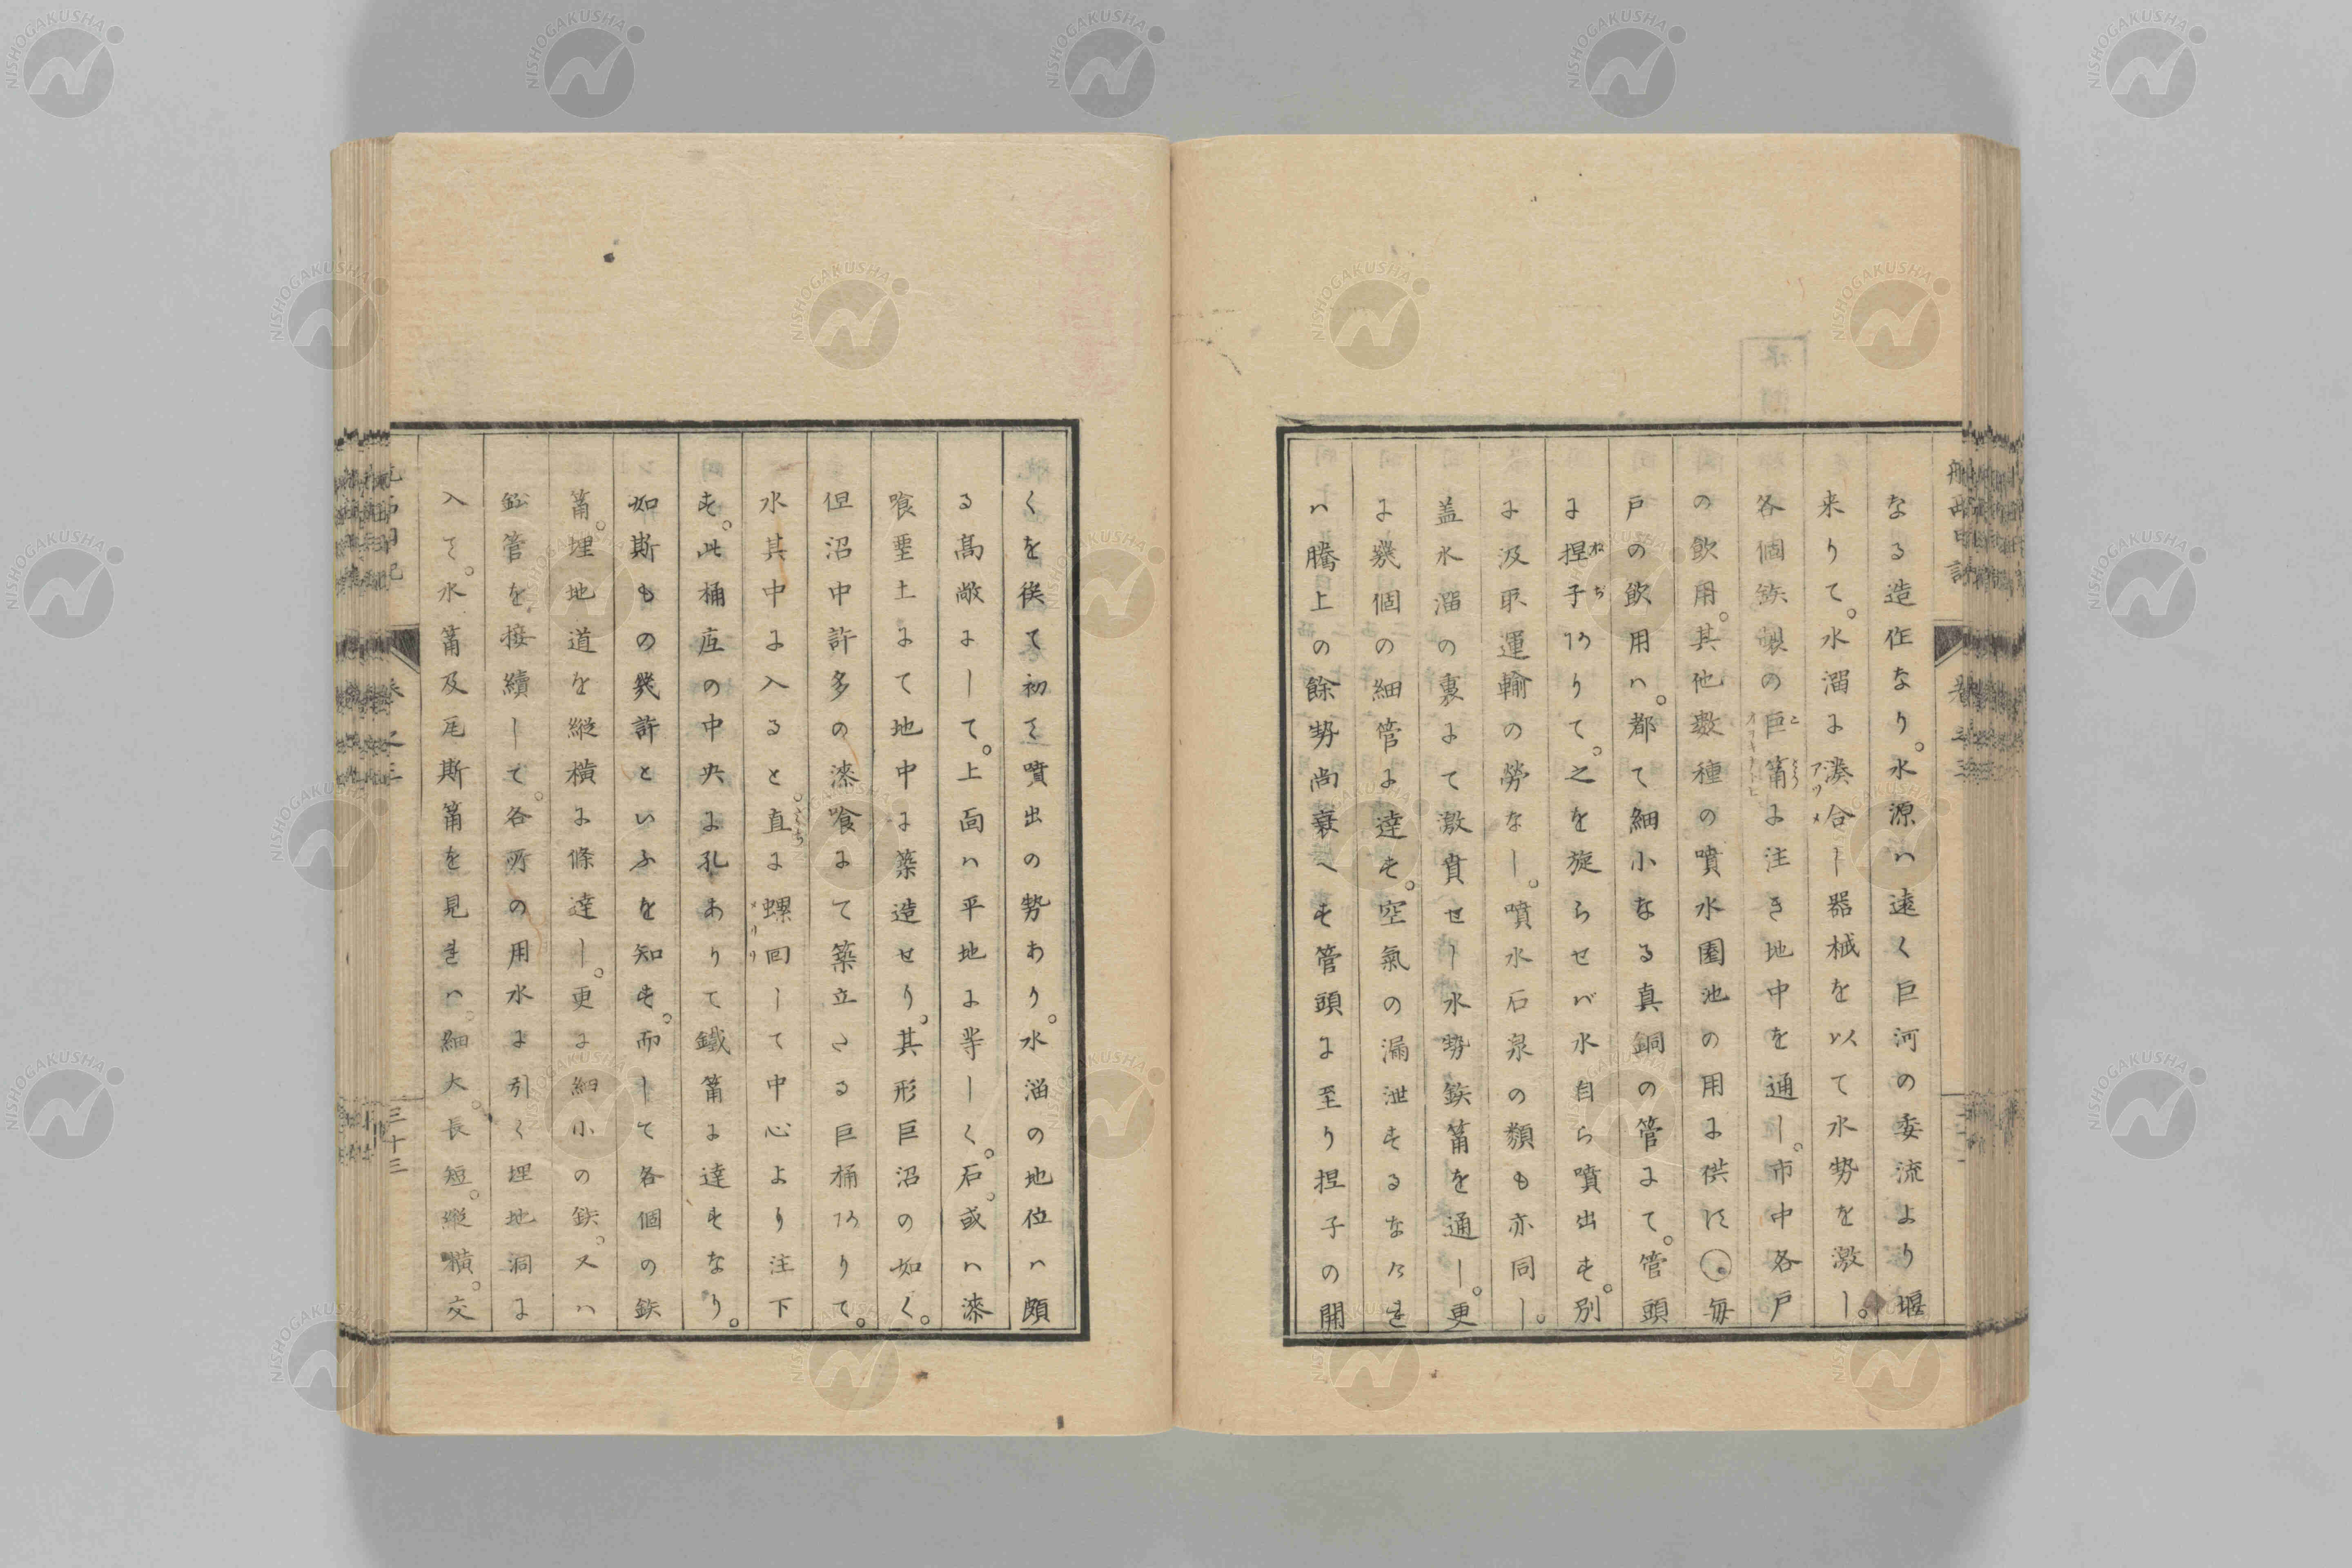 なる造作なり。水源ハ遠く巨河の委流より堰
来りて。水溜に湊合し器械を以て水勢を激し。
各個鉄製の巨筩に注き地中を通し。市中各戸
の飲用。其他数種の噴水園池の用に供す毎
戸の飲用ハ。都て細小なる真銅の管にて。管頭
に捏子ありて。之を旋らせバ水自ら噴出す。別
に汲取運輸の労なし。噴水石泉の類も亦同し。
蓋水溜の裏にて激賁せし水勢鉄筩を通し。更
に幾個の細管に達す。空氣の漏泄するなけれは
ハ騰上の餘勢尚衰へす管頭に至り捏子の開
くを俟て初て噴出の勢あり。水溜の地位ハ頗
る高敞にして。上面ハ平地に等しく。石。或ハ漆
喰堊土にて地中に築造せり。其形巨沼の如く。
但沼中許多の漆喰にて築立たる巨桶ありて。
水其中に入ると。直に螺回して中心より注下
す。此桶底の中央に孔ありて鐵筩に達すなり。
如斯もの幾許といふを知す。而して各個の鉄
筩。埋地道を縦横に條達し。更に細小の鉄。又ハ
鉛管を接續して。各所の用水に引く埋地洞に
入て。水筩及瓦斯筩を見れハ。細大。長短。縦横。交
航西日記
巻之三
三十三
NISHOGAKUSHA